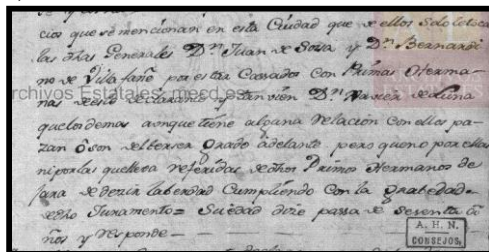 cios que se mencionan en esta Ciudad que de ellos solo le toca
las dhas Generales Dn Juan de Sosa y Dn Bernardi
no de Villafañe por estar Cassados con Primas Herma
nas de este declarante y tanvien Dn Xavier de Luna
que los demas aunque tiene alguna Relacion con ellos pa
zan ô son del tercer Grado adelante pero que no por ellas
ni por las que lleva referidas de dhos Primos Hermanos de
jara de dezir la berdad Cumpliendo Con la Grabedad
de dho Juramento= Su edad dize passa de sesenta a
ños y responde
rchivos Estatales, mecd.es
A. H. N.
CONSEJOS,